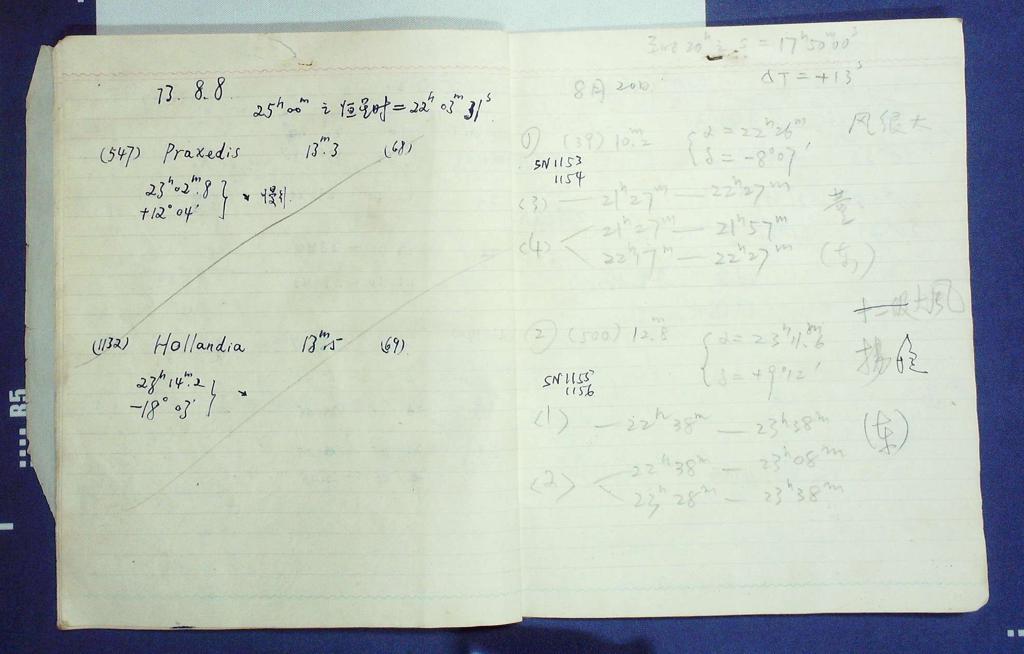 73. 8.8.
25ʰ00ᵐ之恒星时=22ʰ03ᵐ31ˢ
(547) Praxedis 13ᵐ.3 (68)
23ʰ02ᵐ.8
+12°04′
(1132) Hollandia 13ᵐ.5 (69)
23ʰ14ᵐ.2
-18°03′
S = 17ʰ50ᵐ00ˢ
ΔT = +13ˢ
8月20日
风很大
① (39) 10.2
α = 22ʰ26ᵐ
δ = -8°07′
SN1153
1154
(3) — 21ʰ27ᵐ — 22ʰ27ᵐ
(4) 21ʰ27ᵐ — 21ʰ57ᵐ
22ʰ17ᵐ — 22ʰ27ᵐ
(东)
十二级大风
② (500) 12.8
α = 23ʰ11ᵐ.6
δ = +9°12′
SN1155
1156
(1) — 22ʰ38ᵐ — 23ʰ38ᵐ
(东)
(2) 22ʰ38ᵐ — 23ʰ08ᵐ
23ʰ28ᵐ — 23ʰ38ᵐ
R5